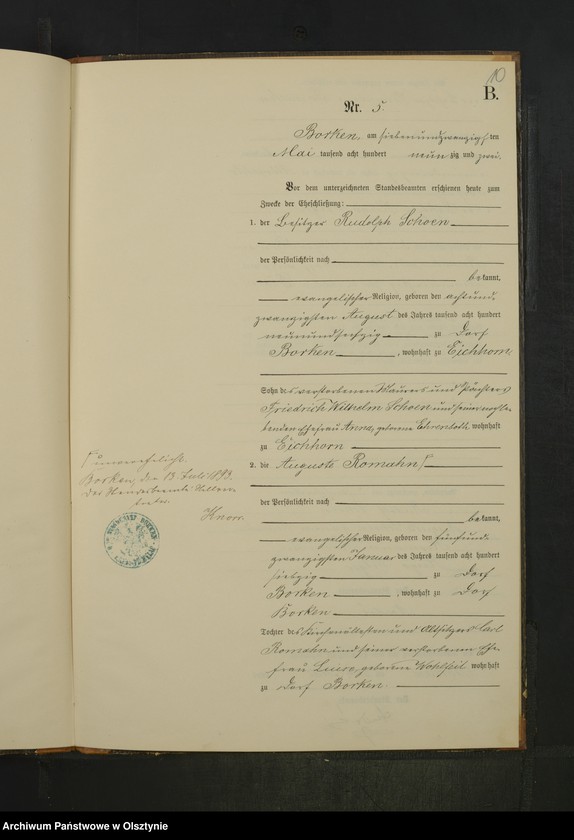 10
B.
Nr. 5
Borken, am siebenundzwanzigsten
Mai tausend acht hundert neunzig und zwei.
Vor dem unterzeichneten Standesbeamten erschienen heute zum
Zwecke der Eheschließung:
1. der Besitzer Rudolph Schoen
der Persönlichkeit nach
bekannt,
evangelischer Religion, geboren den achtund
zwanzigsten August des Jahres tausend acht hundert
neunundsechzig zu Dorf
Borken, wohnhaft zu Eichhorn,
Sohn des verstorbenen Maurers und Pächters
Friedrich Wilhelm Schoen und seiner nachle-
benden Ehefrau Anna, geborene Ehrenboth, wohnhaft
zu Eichhorn
2. die Auguste Romahn
der Persönlichkeit nach
bekannt,
evangelischer Religion, geboren den fünfund
zwanzigsten Januar des Jahres tausend acht hundert
siebzig zu Dorf
Borken, wohnhaft zu Dorf
Borken
Tochter des Kirchenältesten und Altsitzers Carl
Romahn und seiner verstorbenen Ehe-
frau Luise, geborene Wohlfeil wohnhaft
zu Dorf Borken.
unverehelichte
Borken, den 13 Juli 1893.
Der Standesbeamte Stellver-
treter.
Knorr.
Archiwum Państwowe w Olsztynie